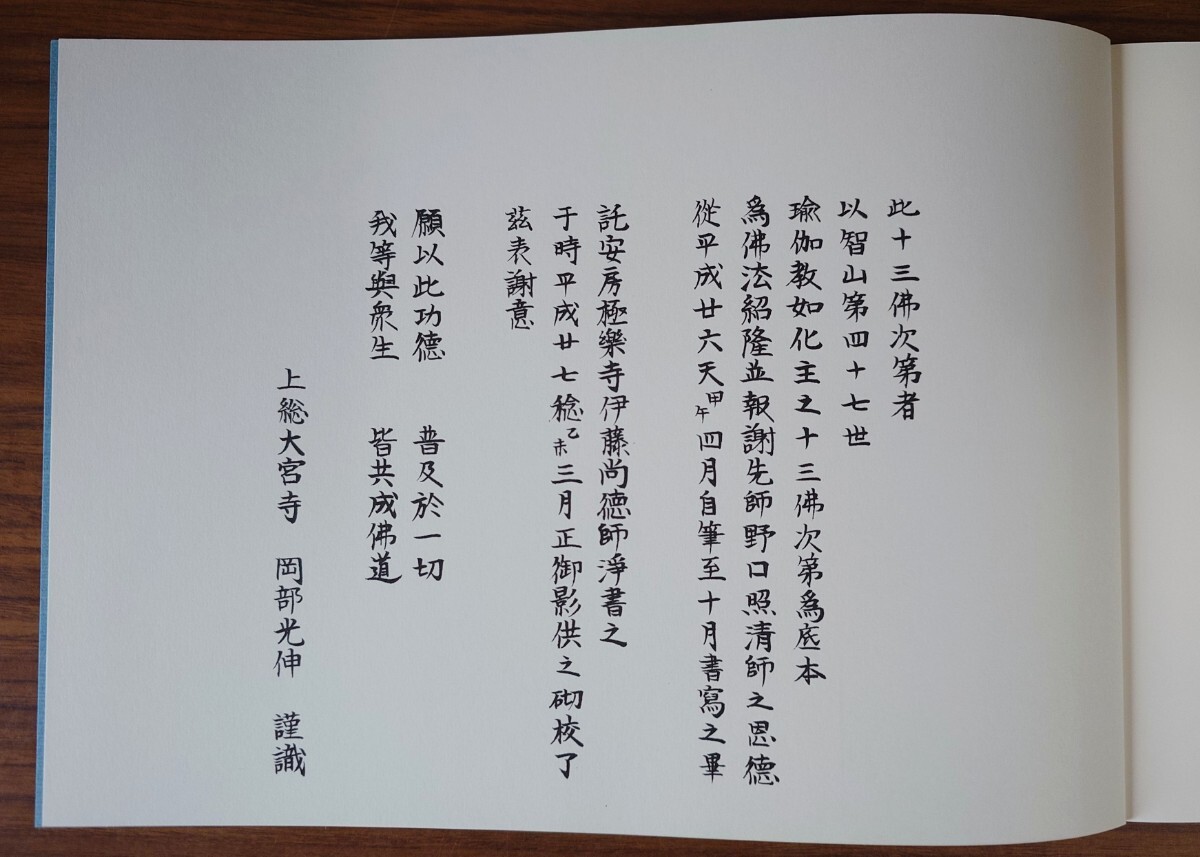 此十三佛次第者
以智山第四十七世
瑜伽教如化主之十三佛次第爲底本
爲佛法紹隆並報謝先師野口照清師之恩德
從平成廿六天甲午四月自筆至十月書寫之畢
託安房極樂寺伊藤尚德師淨書之
于時平成廿七稔乙未三月正御影供之砌校了
茲表謝意
願以此功德　普及於一切
我等與衆生　皆共成佛道
上総大宮寺　岡部光伸　謹識